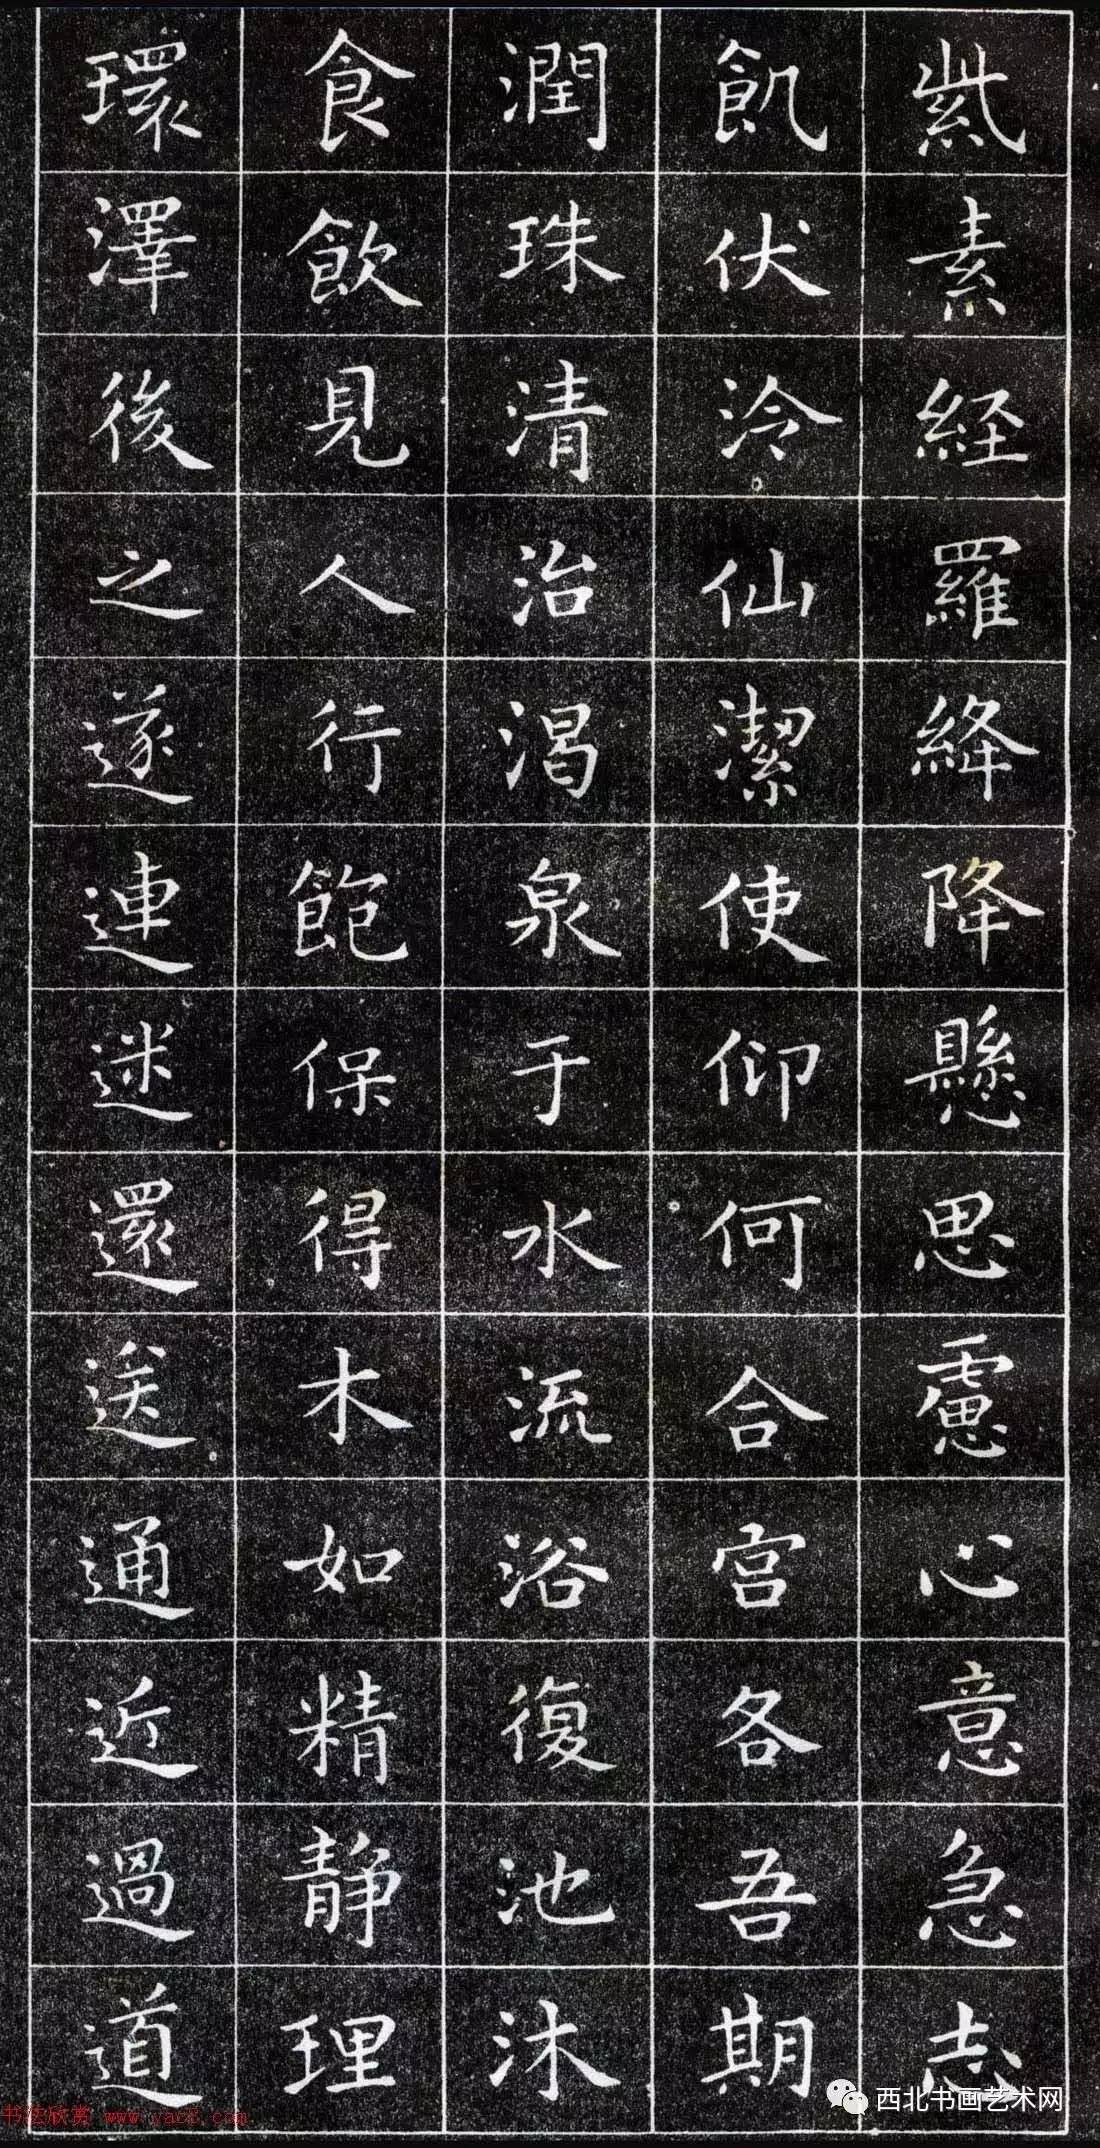 紫素経羅絳降懸思慮心意急志
飢伏泠仙潔使仰何合宮各吾期
潤珠清治渴泉于水流浴復池沐
食飲見人行飽保得木如精靜理
環澤後之遂連迷還送通近過道
西北书画艺术网
书法欣赏 www.yac8.com